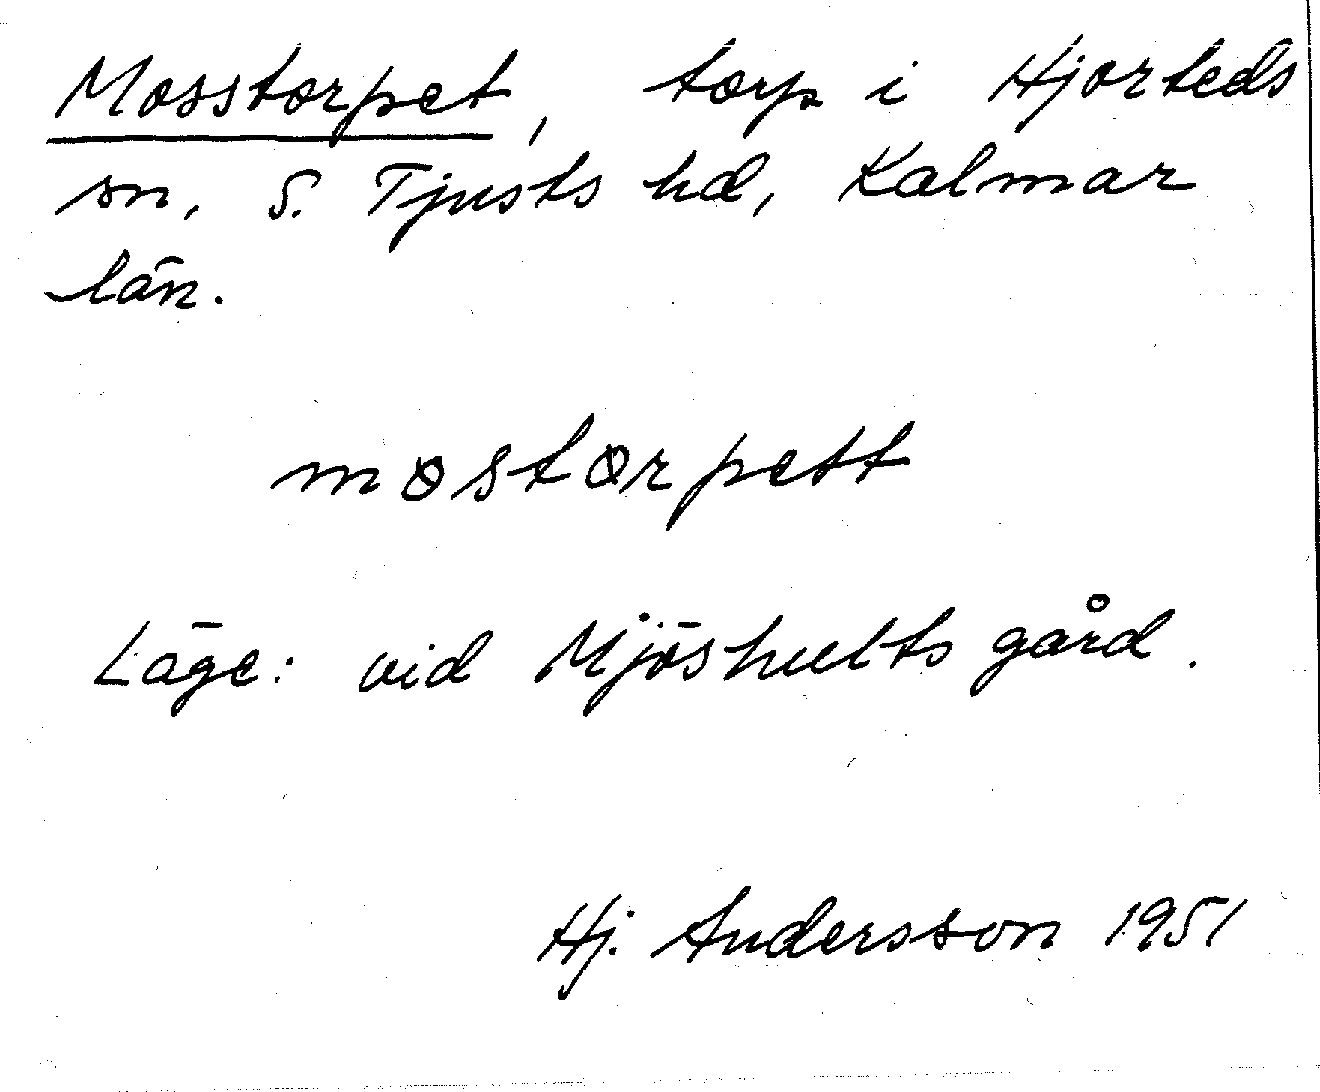 Mosstorpet, torp i Hjorteds
sn, S. Tjusts hd, Kalmar
län.
møstørpett
Läge: vid Mjöshults gård.
Hj. Andersson 1951